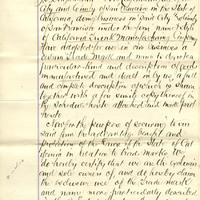 City and County of San Francisco in the State of
California, doing business in said City & County
of San Francisco under the firm name & style
of California Manufacturing Company
have adopted for use in our business a
Trade Mark and now to designate
particular kind and description of goods
manufactured and dealt in by us, a full
and complete description of which is given
together with a fac simile copy thereof in
the schedule hereto attached and made part
hereto.
Now for the purpose of securing to our
said firm the advantage, benefit and
protection of the laws of the State of Cal
ifornia in relation to trade marks We
do hereby certify that we are the owners
and sole owners of and do hereby claim
the exclusive use of the Trade Mark
and name more particularly described